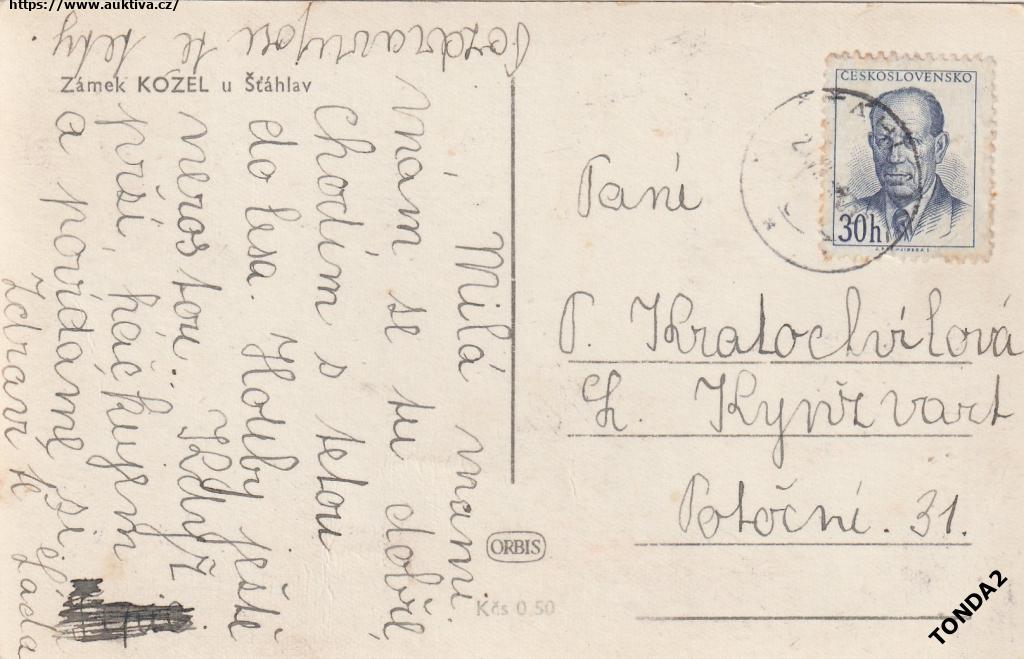 https://www.auktiva.cz/
Zámek KOZEL u Šťáhlav
Milá mami.
mám se tu dobře,
chodím s tetou
do lesa. Houby ještě
nerostou. Když
prší, háčkujem
a povídáme si
Zdraví tě Láďa
Pozdravujou tě tety.
ČESKOSLOVENSKO
30h
Paní
P. Kratochvílová
L. Kynžvart
Potoční. 31.
ORBIS
Kčs 0.50
TONDA2